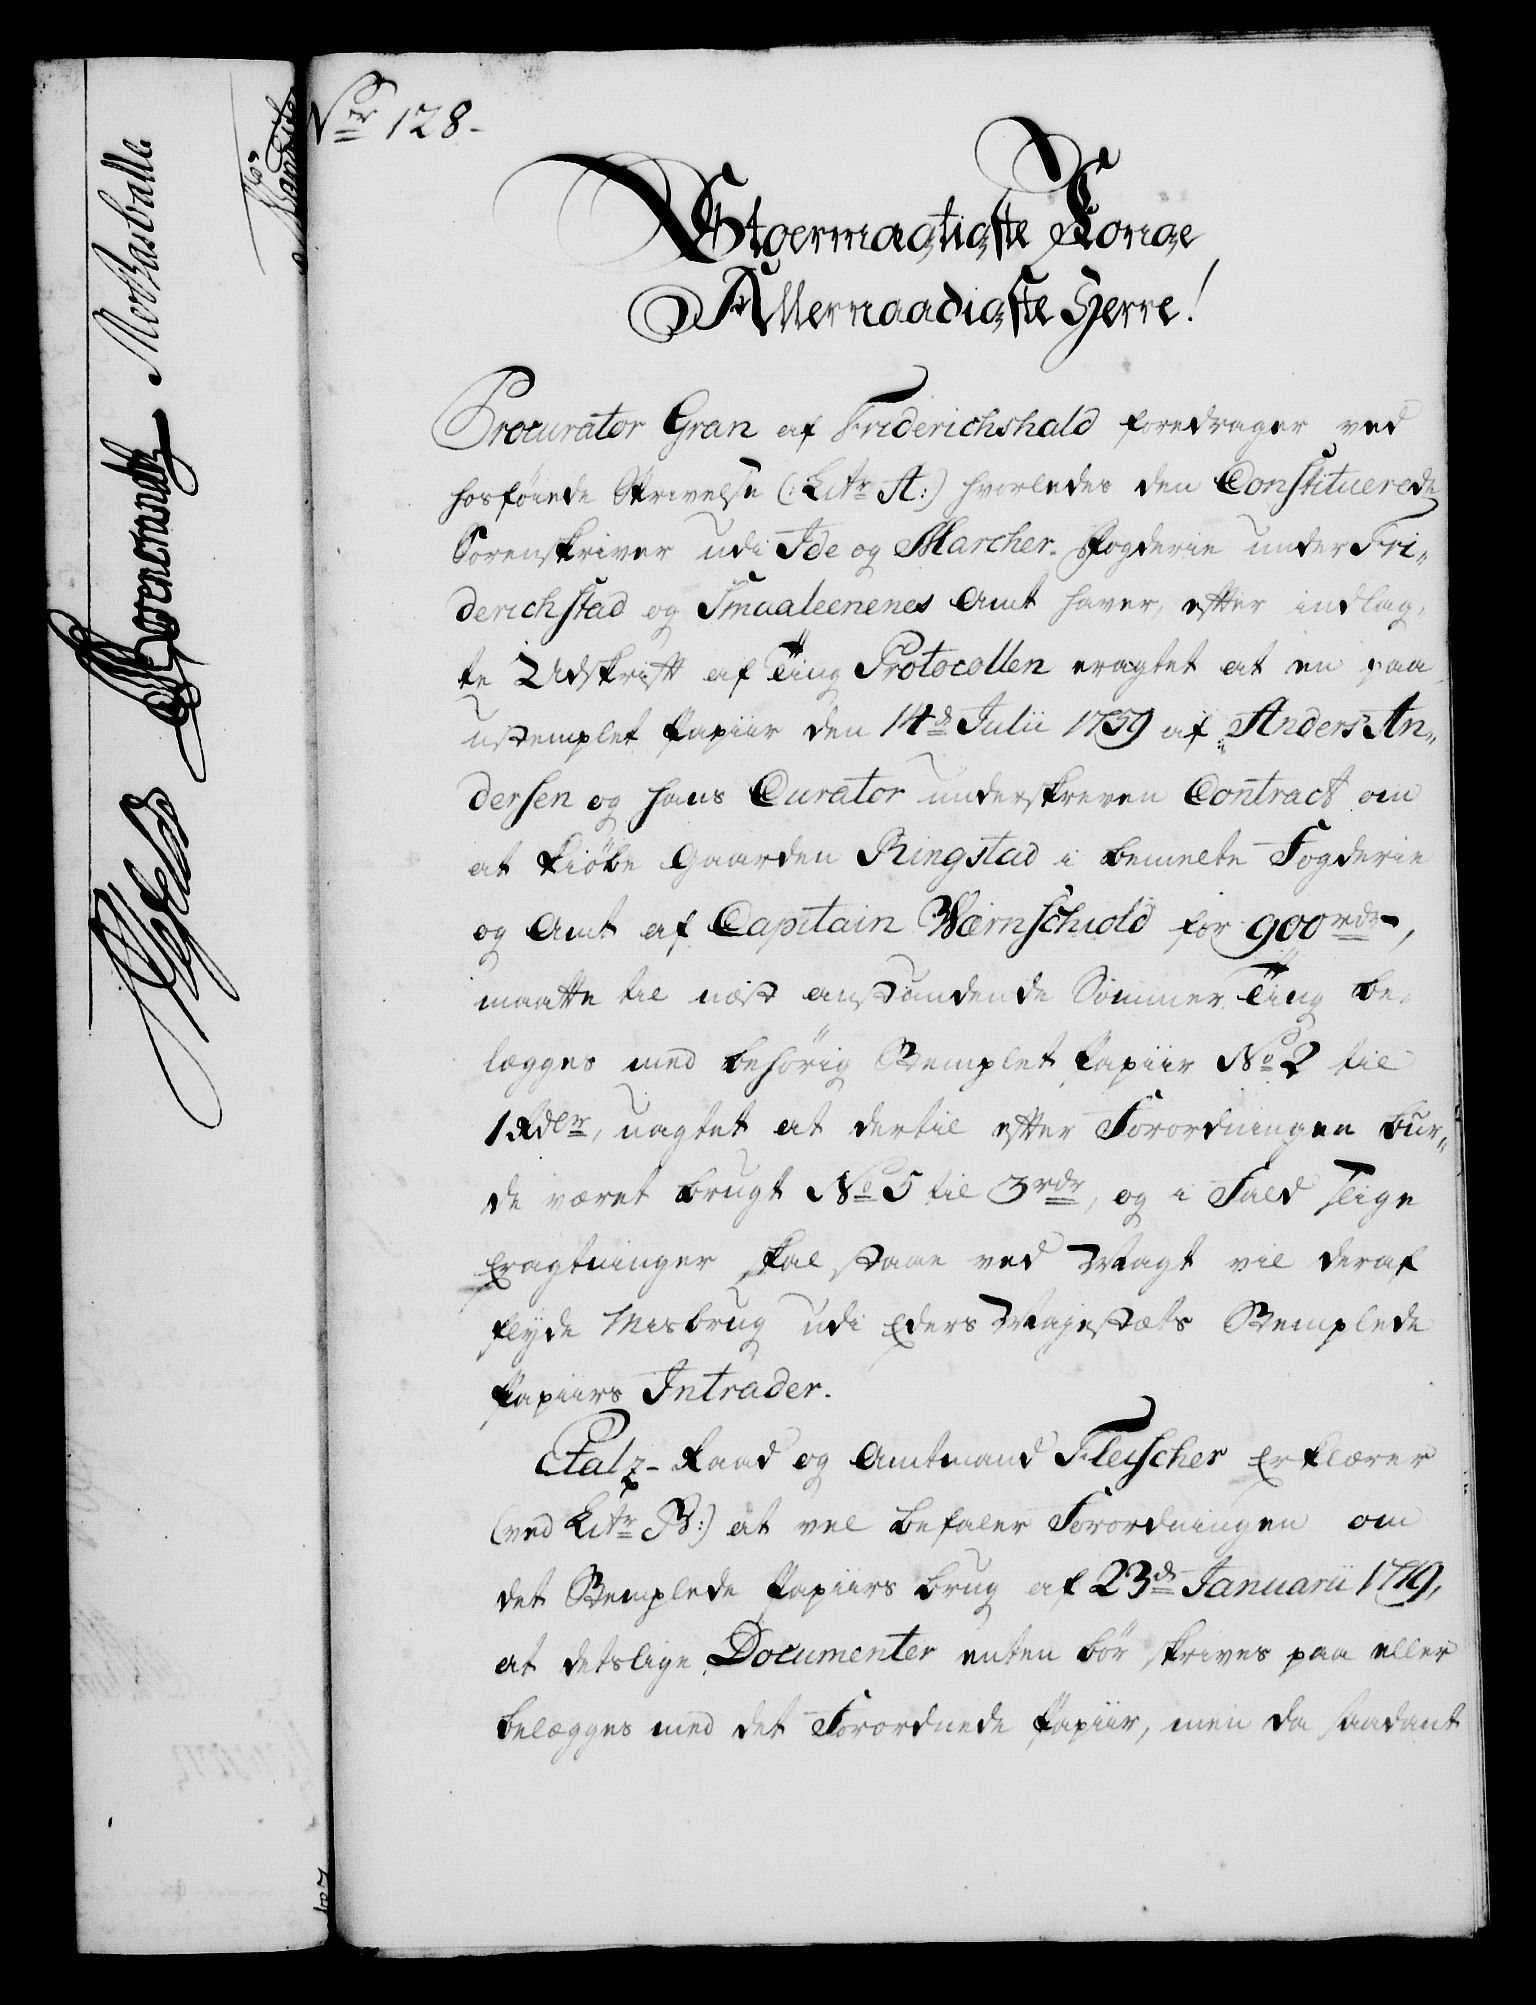 Nr 128.
Stoermagtigste Konge
Allernaadigste Herre!
Procurator Gran af Friderichshald foredrager ved
hosföiede Skrivelse (: Litr A:) hvorledes den Constituerede
Sorenskriver udi Ide og Marcher Fogderie under Fri-
derichstad og Smaaleenenes Amt haver, efter indlag-
te Udskrift af Ting Protocollen eragtet at en paa
ustemplet Papiir den 14d Julii 1759 af Anders An-
dersen og hans Curator underskreven Contract om
at kiöbe Gaarden Ringstad i bemelte Fogderie
og Amt af Capitain Wærnschiold for 900 rdr,
maatte til næst anstundende Sommer Ting be-
lægges med behörig Stemplet Papiir No 2 til
1 Rdlr, uagtet at dertil efter Forordningen bur-
de været brugt No 5 til 3 rdr, og i Fald slige
Eragtninger skal staae ved Magt vil deraf
flyde Misbrug udi Eders Majestæts Stemplede
Papiirs Intrader.
Etatz-Raad og Amtmand Fleischer Erklærer
(ved Litr B:) at vel befaler Forordningen om
det Stemplede Papiirs brug af 23d Januarii 1719,
at detslige Documenter enten bör skrives paa eller
belægges med det Forordnede Papiir, men da saadant